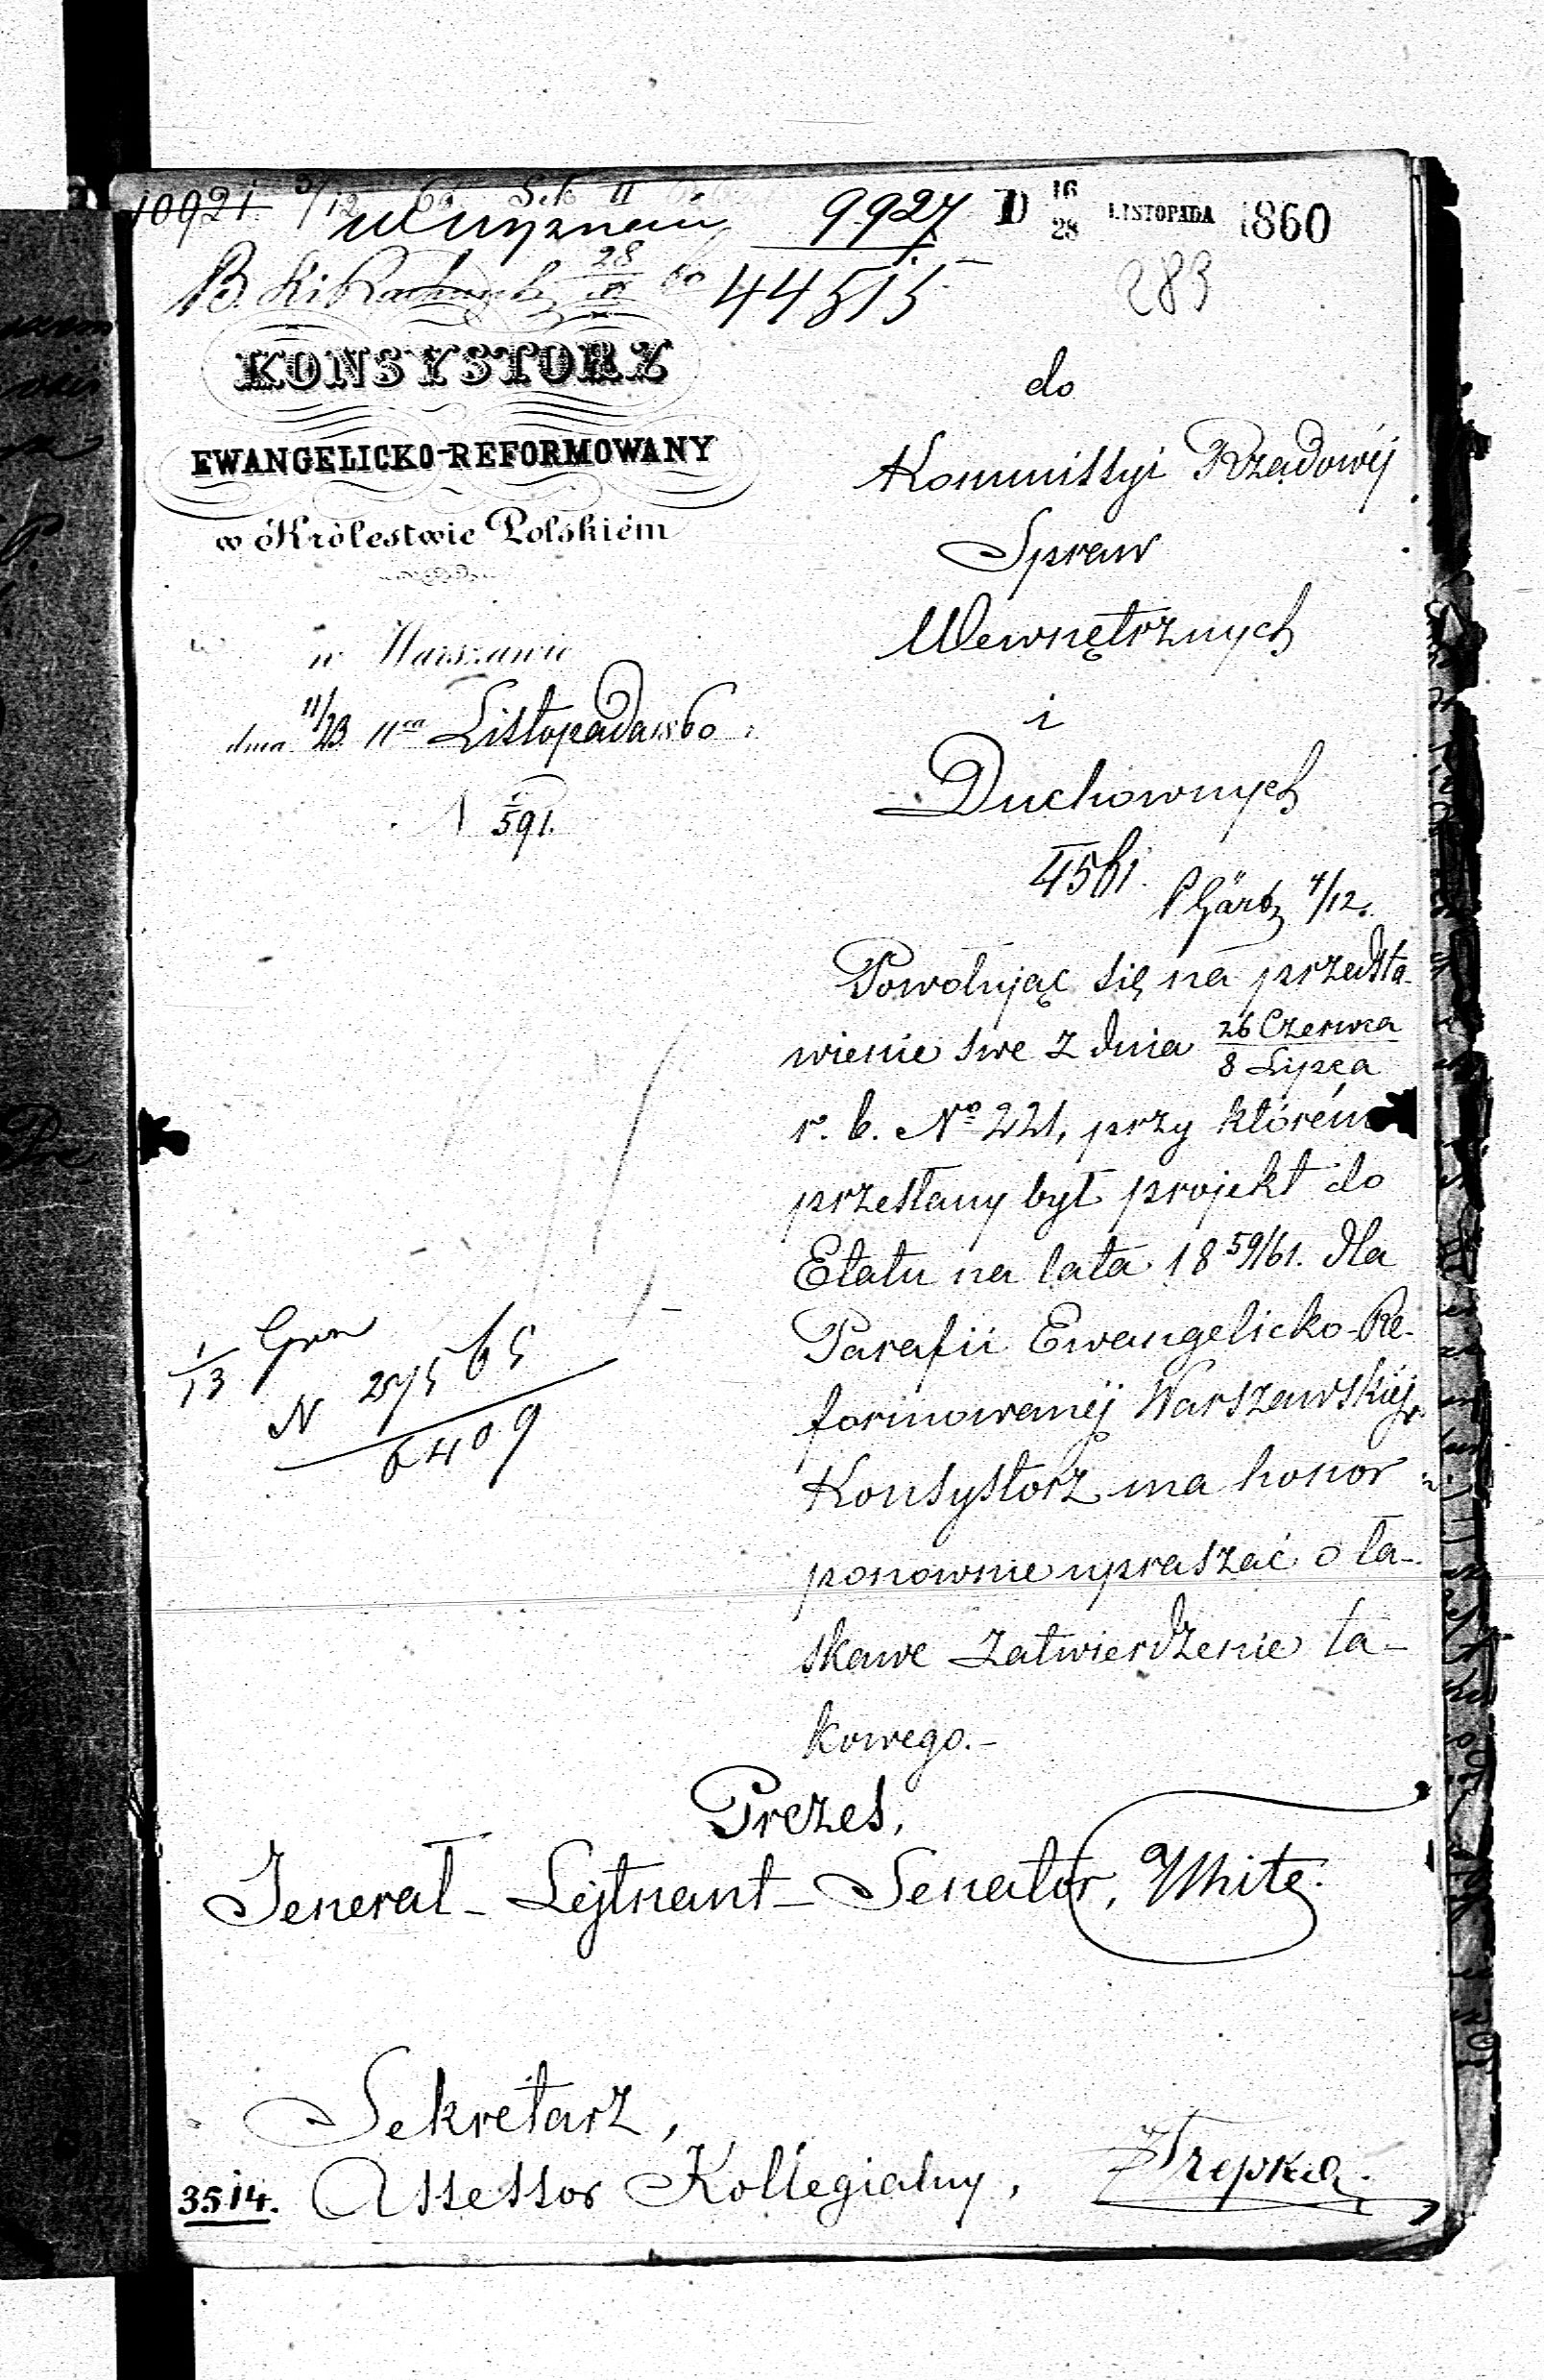 10921 3/12 60 Sek II
9927 D 16/28 LISTOPADA 1860
28/XI 60 44515
283
KONSYSTORZ
EWANGELICKO-REFORMOWANY
w Królestwie Polskiém
w Warszawie
dnia 11/23 Listopada 1860
N 591.
do
Kommissyi Rządowéj
Spraw
Wewnętrznych
i
Duchownych
4/12.
Powołując się na przedsta-
wienie swe z dnia 26 Czerwca / 8 Lipca
r. b. No 221, przy którém
przesłany był projekt do
Etatu na lata 18 59/61. dla
Parafii Ewangelicko-Re-
formowanéj Warszawskiéj,
Konsystorz ma honor
ponownie upraszać o ła-
skawe zatwierdzenie ta-
kowego.-
1/13 Grn
N 27565
6409
Prezes,
Jenerał-Lejtnant-Senator, White.
Sekretarz,
3514. Assessor Kollegialny, Trepka.